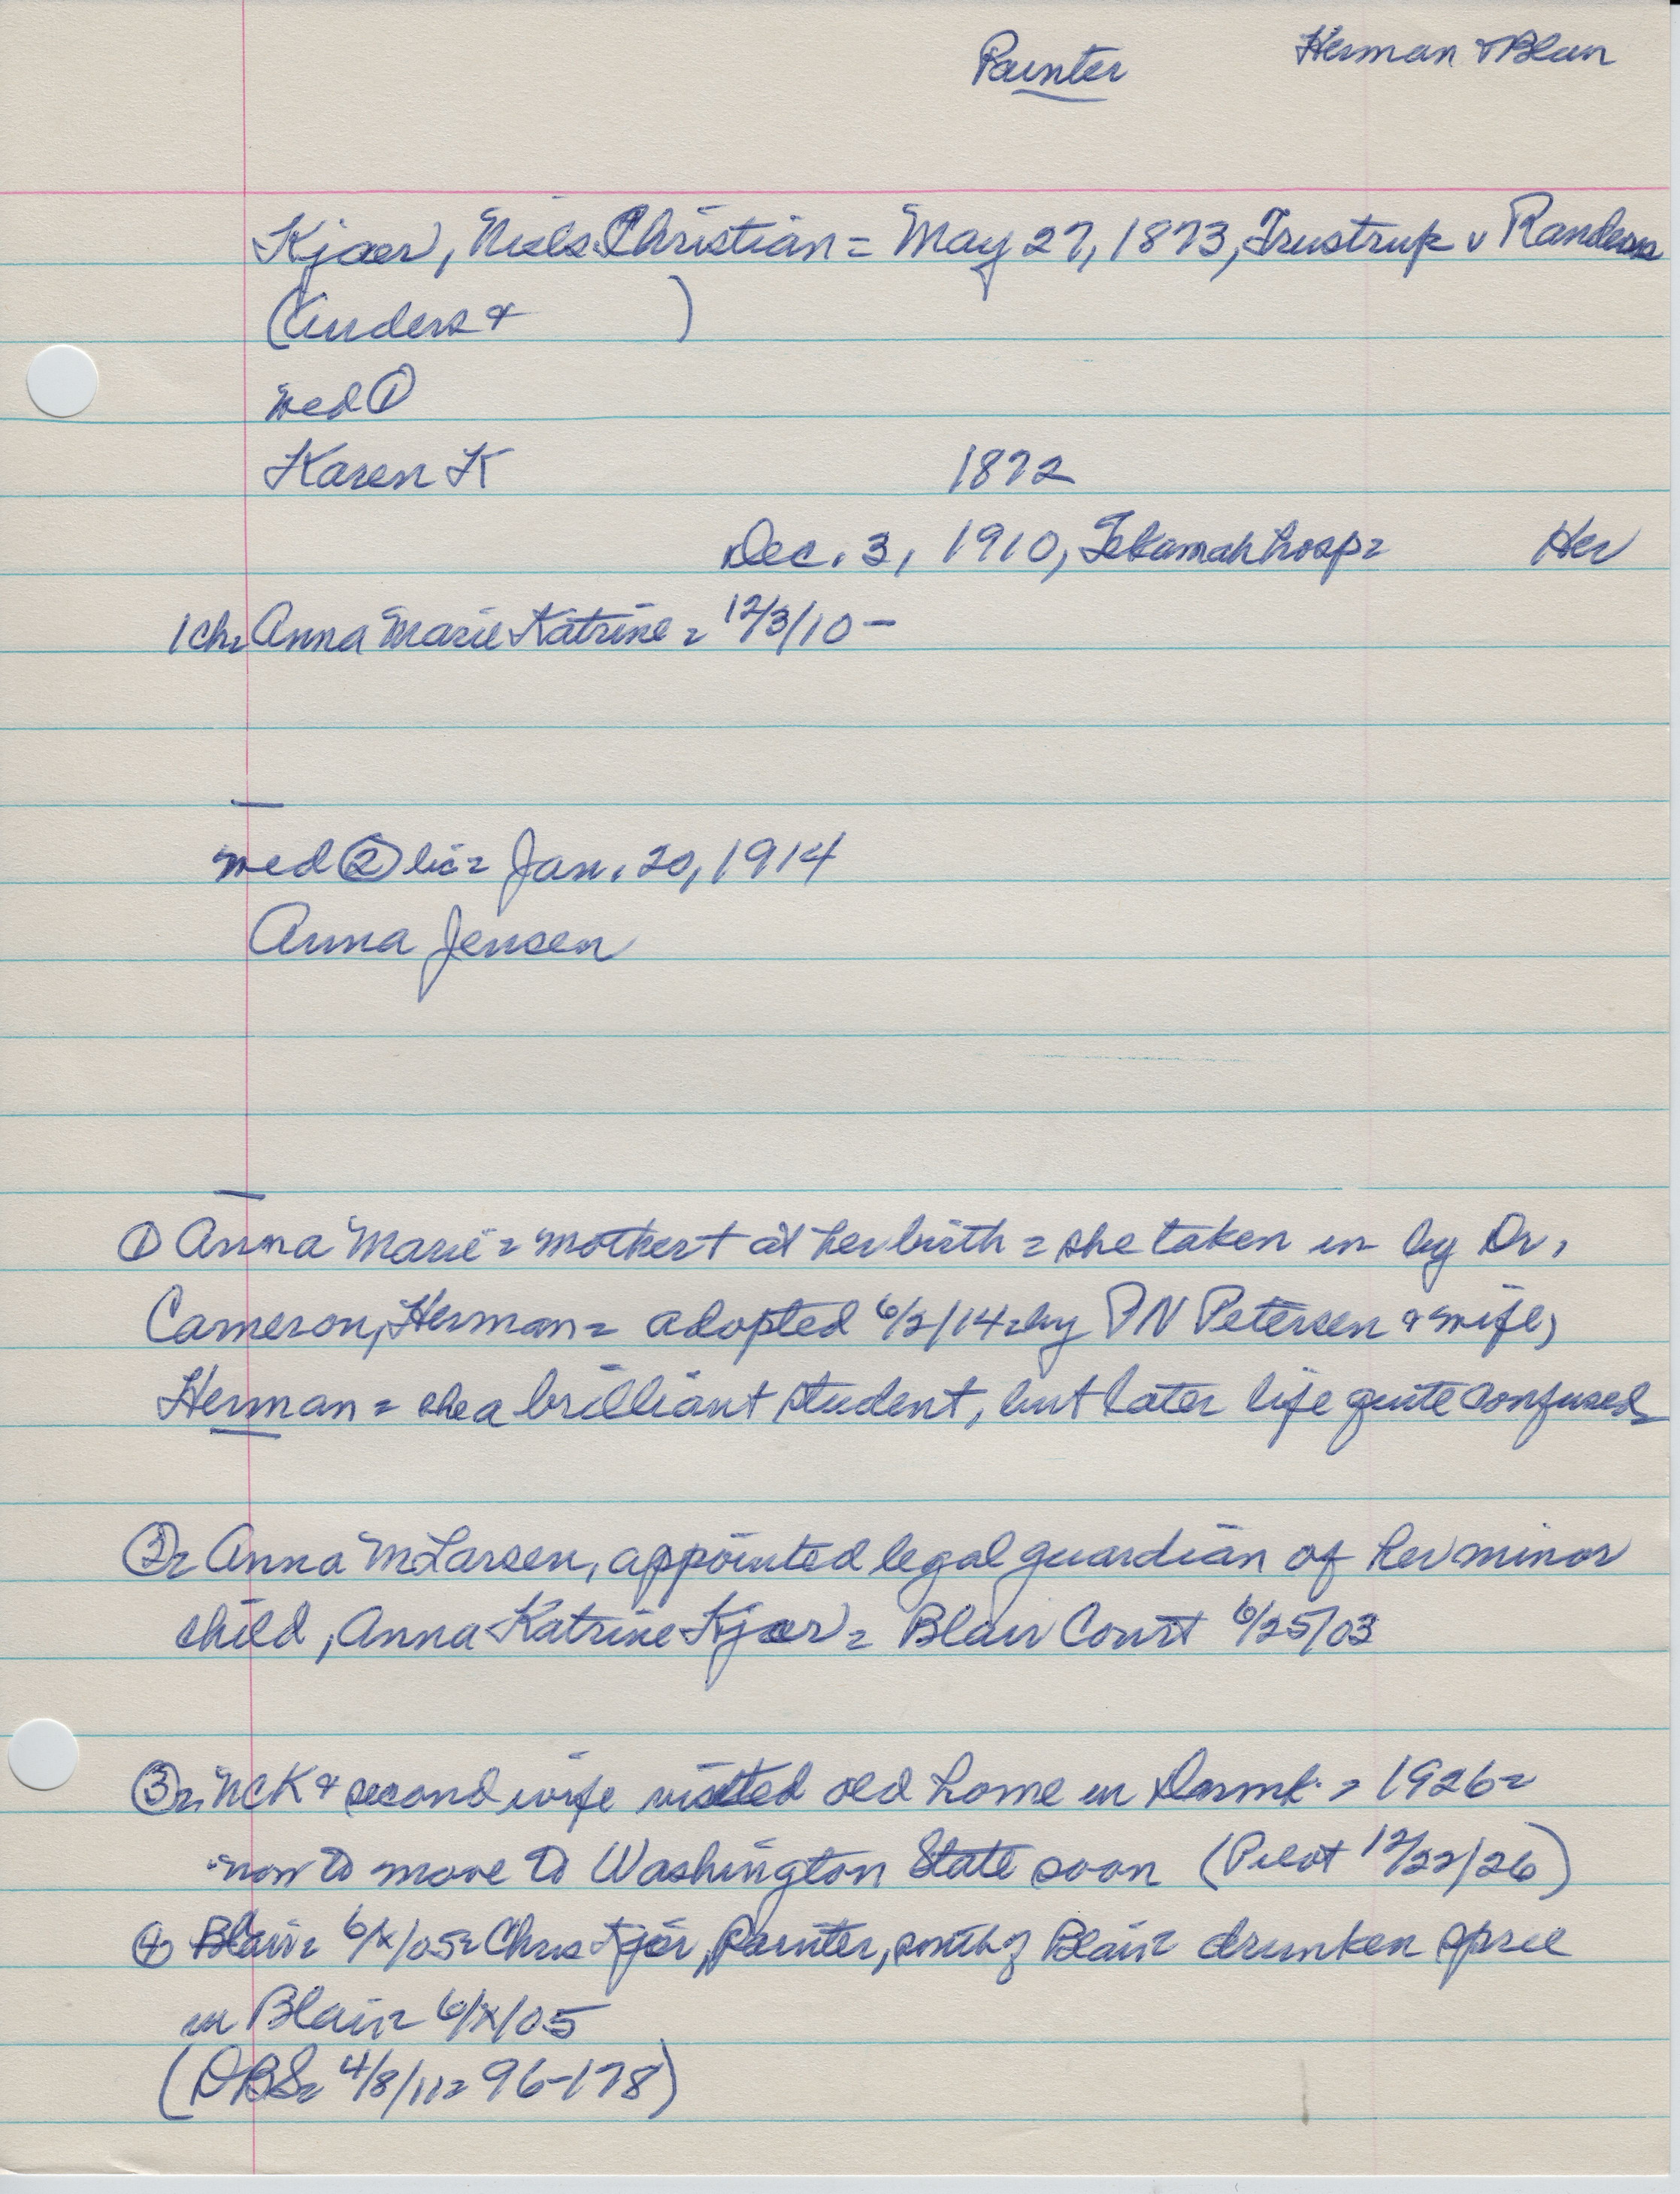 Painter Herman & Blair
Kjaer, Niels Christian = May 27, 1873, Trustrup v Randers
(Anders & )
med ①
Karen K 1872
Dec. 3, 1910, Tekamah hosp = Her
1 ch = Anna Marie Katrine = 12/3/10 –
med ② lic = Jan. 20, 1914
Anna Jensen
① Anna Marie = mother † at her birth = she taken in by Dr.
Cameron, Herman = adopted 6/2/14 = by PN Petersen & wife,
Herman = she a brilliant student, but later life quite confused
② = Anna M Larsen, appointed legal guardian of her minor
child, Anna Katrine Kjaer = Blair Court 6/25/03
③ = NCK & second wife visited old home in Danmk. = 1926 =
now to move to Washington State soon (Pilot 12/22/26)
④ Blair = 6/x/05 = Chris Kjär, Painter, south of Blair = drunken spree
in Blair = 6/x/05
(DBS = 4/8/11 = 96-178)